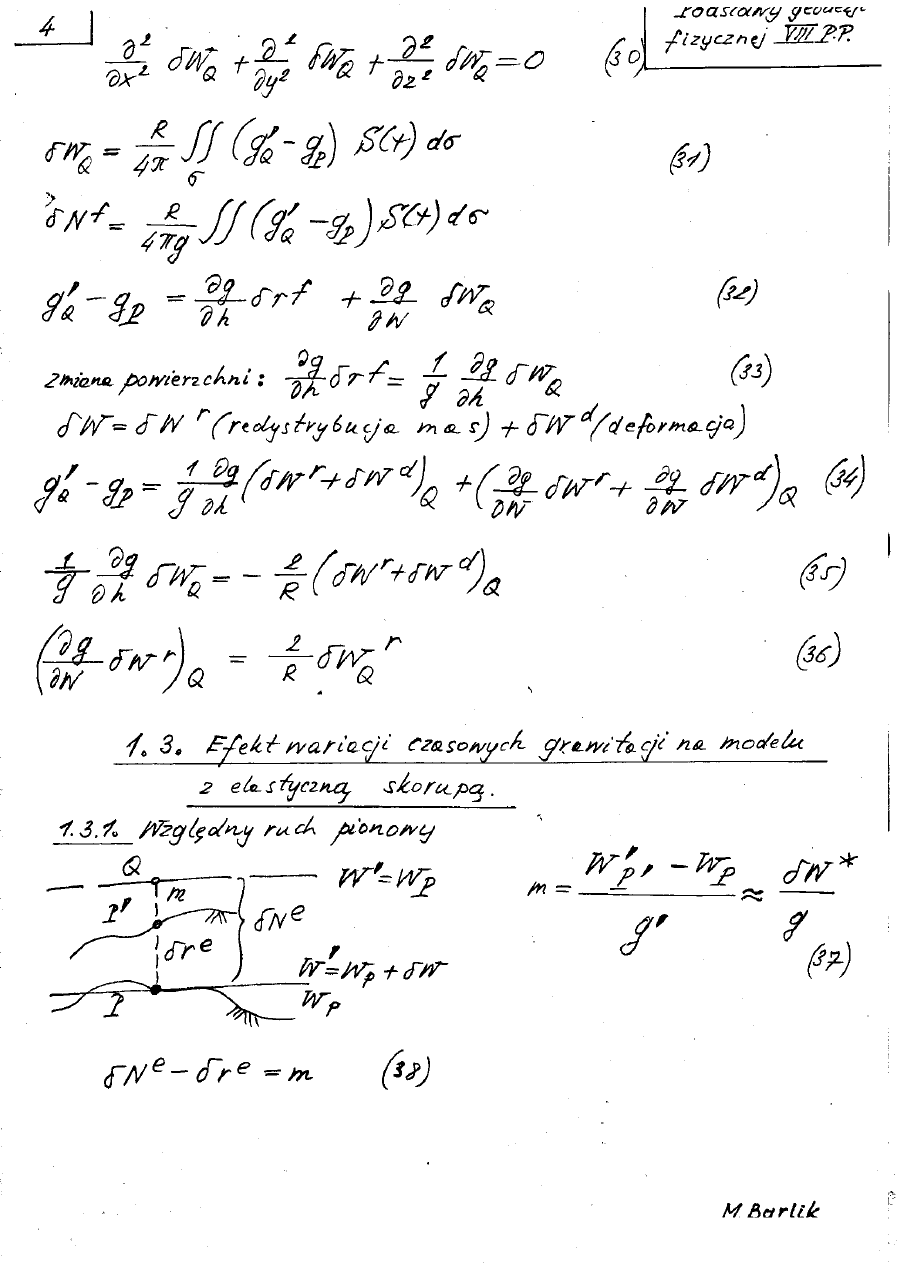 4
rodstawy geodezji
fizycznej VIII P.P.
∂²/∂x² δW_Q + ∂²/∂y² δW_Q + ∂²/∂z² δW_Q = 0 (30)
δW_Q = R/4π ∬_σ (g'_Q - g_P) S(t) dσ (31)
δN^f = R/4πg ∬ (g'_Q - g_P) S(t) dσ
g'_Q - g_P = ∂g/∂h δr^f + ∂g/∂W δW_Q (32)
zmiana powierzchni: ∂g/∂h δr^f = 1/g ∂g/∂h δW_Q (33)
δW = δW^r (redystrybucja mas) + δW^d (deformacja)
g'_Q - g_P = 1/g ∂g/∂h (δW^r + δW^d)_Q + (∂g/∂W δW^r + ∂g/∂W δW^d)_Q (34)
1/g ∂g/∂h δW_Q = - 2/R (δW^r + δW^d)_Q (35)
(∂g/∂W δW^r)_Q = 2/R δW_Q^r (36)
1.3. Efekt wariacji czasowych grawitacji na modelu
z elastyczną skorupą.
1.3.1. Względny ruch pionowy
Q
W' = W_P
m
P'
δN^e
δr^e
W' = W_P + δW
W_P
P
m = (W'_P' - W_P)/g' ≈ δW*/g
(37)
δN^e - δr^e = m (38)
M. Barlik